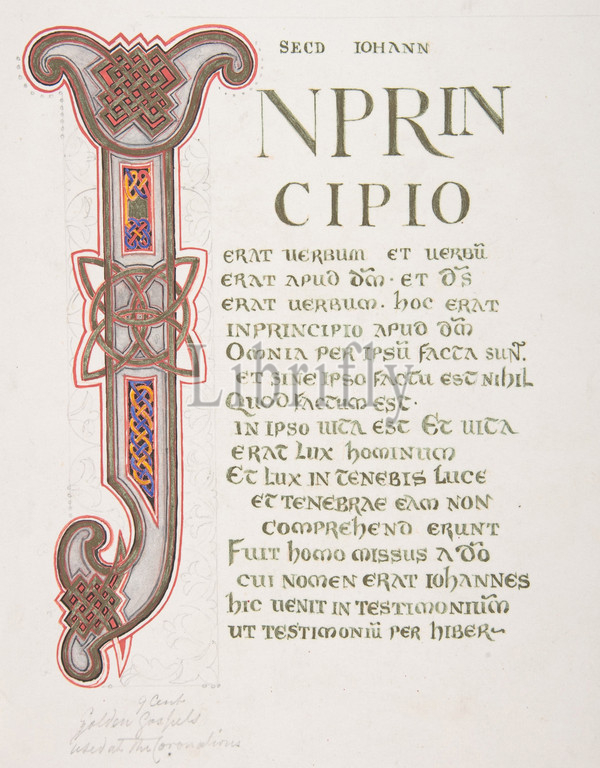 SECD IOHANN
INPRIN
CIPIO
ERAT UERBUM ET UERBŪ
ERAT APUD DM̄ · ET D̄S
ERAT UERBUM · hOC ERAT
INPRINCIPIO APUD DM̄
OMNIA PER IPSŪ FACTA SUNT.
ET SINE IPSO FACTU EST NIHIL
QUOD FACTUM EST ·
IN IPSO UITA EST ET UITA
ERAT LUX HOMINUM
ET LUX IN TENEBIS LUCE
ET TENEBRAE EAM NON
COMPREHEND ERUNT
FUIT hOMO MISSUS A DŌ
CUI NOMEN ERAT IOHANNES
hIC UENIT IN TESTIMONIUM̄
UT TESTIMONIŪ PER hIBER
Librifly
9 Cent.
golden Gospels
used at the Coronations